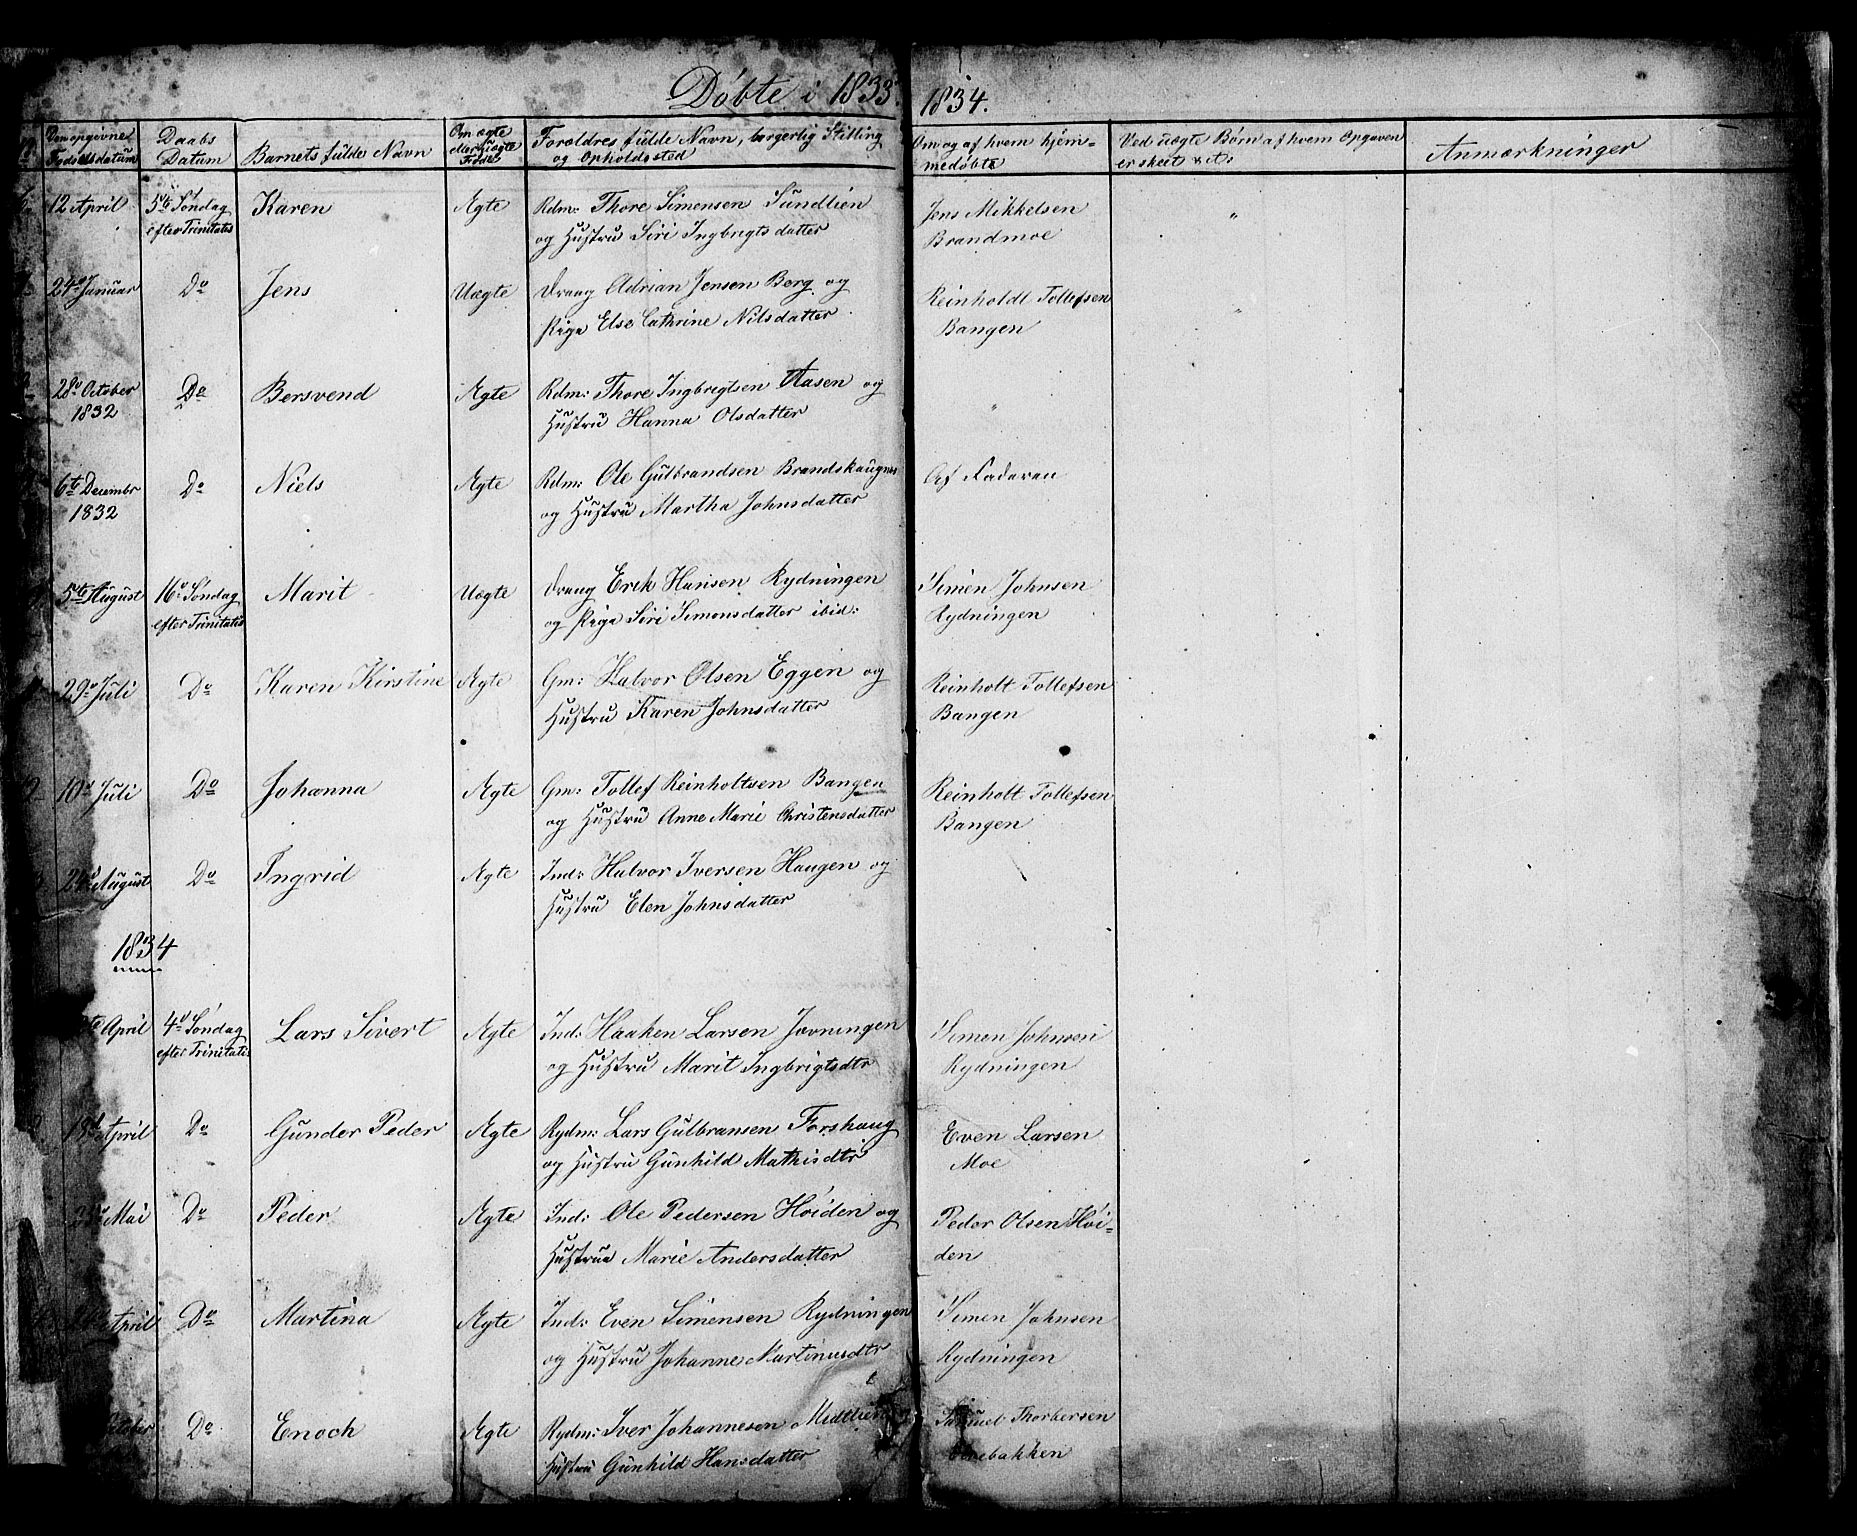 Døbte i 1833. 1834.
Den opgivne Fødselsdatum
Daabs Datum
Barnets fulde Navn
Om ægte eller uægte Født
Forældres fulde Navn, borgerlig Stilling og Opholdssted
Om og af hvem hjemmedøbt
Ved uægte Børn af hvem Opgaven er skeet &ct:
Anmærkninger
12 April
5te Søndag
efter Trinitatis
Karen
Ægte
Rdm: Thore Simensen Sundlien
og Hustru Siri Ingbrigtsdatter
Jens Mikkelsen
Brandmoe
"
24de Januar
Do
Jens
Uægte
Dreng Adrian Jensen Berg og
Pige Else Cathrine Nilsdatter
Reinholdt Tollefsen
Bangen
"
28de October
1832
Do
Bersvend
Ægte
Rdm: Thore Ingbrigtsen Aasen og
Hustru Hanna Olsdatter
"
6te Decembr
1832
Do
Niels
Ægte
Rdm: Ole Gulbrandsen Brandskaugnes
og Hustru Martha Johnsdatter
Af Faderen
5te August
16de Søndag
efter Trinitatis
Marit
Uægte
Dreng Erik Hansen Rydningen
og Pige Siri Simonsdatter ibid:
Simen Johnsen
Rydningen
29de Juli
Do
Karen Kirstine
Ægte
Gm: Halvor Olsen Eggen og
Hustru Karen Johnsdatter
Reinholt Tollefsen
Bangen
10de Juli
Do
Johanna
Ægte
Gm: Tollef Reinholtsen Bangen
og Hustru Anne Marie Christensdatter
Reinholt Tollefsen
Bangen
August
Do
Ingrid
Ægte
Ind: Halvor Iversen Haugen og
Hustru Elen Johnsdatter
1834
April
4de Søndag
efter Trinitatis
Lars Sivert
Ægte
Ind: Haaken Larsen Jovningen
og Hustru Marit Ingbrigtsdtr
Simen Johnsen
Rydningen
April
Do
Gunder Peder
Ægte
Rydm: Lars Gulbransen Forshaug
og Hustru Gunhild Mathisdtr
Even Larsen
Moe
Mai
Do
Peder
Ægte
Ind: Ole Pedersen Høiden og
Hustrue Marie Andersdatter
Peder Olsen Høi=
den
April
Do
Martina
Ægte
Ind: Even Simensen Rydningen
og Hustru Johanne Martinusdtr
Simen Johnsen
Rydningen
October
Do
Enoch
Ægte
Rydm: Iver Johannesen Midtlien
Hustru Gunhild Hansdatter
Samuel Thorbersen